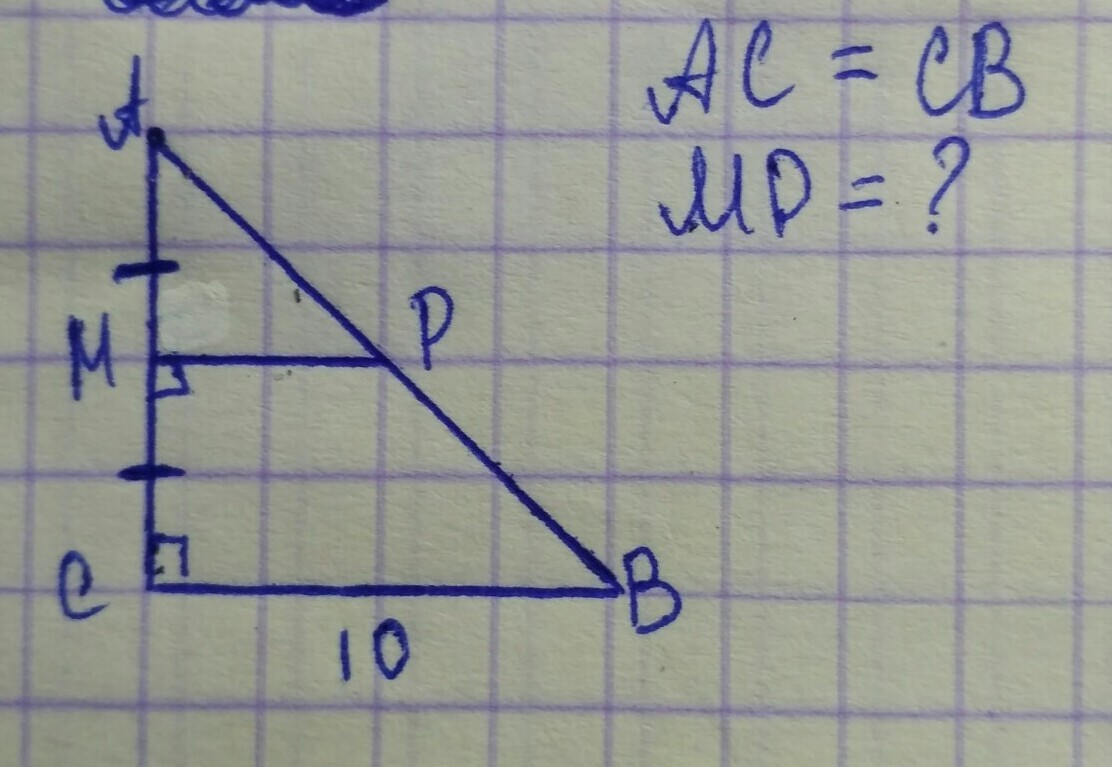 AC = CB
MP = ?
A
M
P
C
B
10